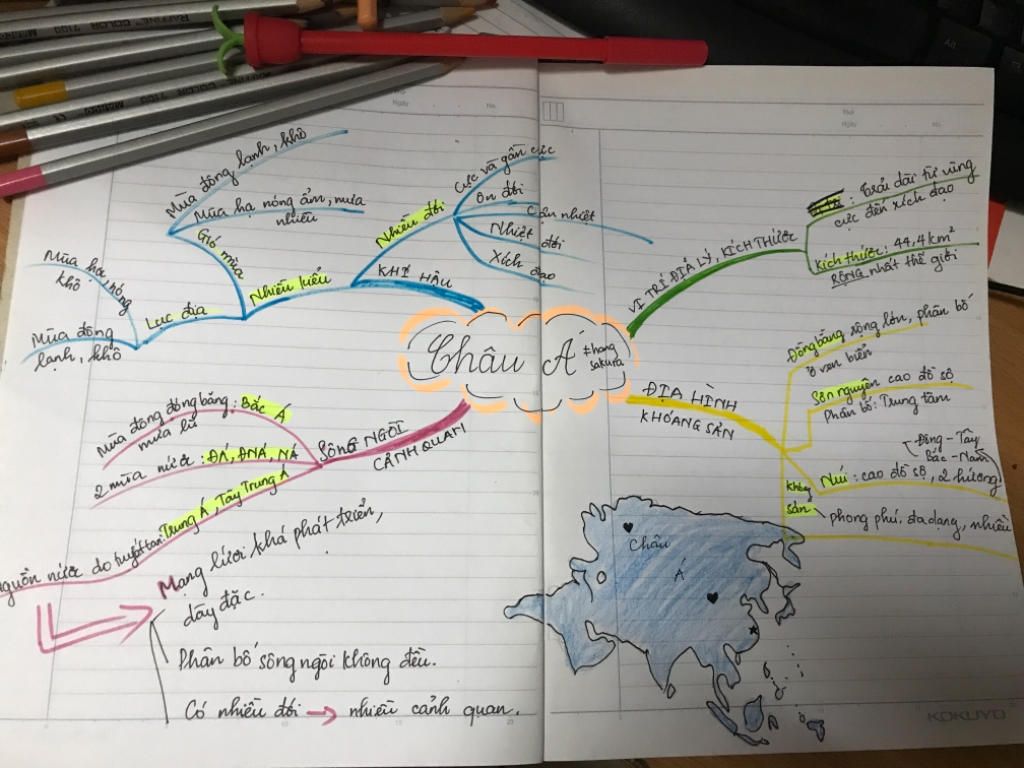 Châu Á
#hang
sakura
KHÍ HẬU
Nhiều đới
Cực và gần cực
Ôn đới
Cận nhiệt
Nhiệt đới
Xích đạo
Nhiều kiểu
Gió mùa
Mùa đông lạnh, khô
Mùa hạ nóng ẩm, mưa
nhiều
Lục địa
Mùa hạ, nóng
khô
Mùa đông
lạnh, khô
SÔNG NGÒI
CẢNH QUAN
Mùa đông đóng băng: Bắc Á
mưa lũ
2 mùa nước: ĐÁ, ĐNÁ, NÁ
nguồn nước do tuyết tan: Trung Á, Tây Trung Á
Mạng lưới khá phát triển,
dày đặc.
Phân bố sông ngòi không đều.
Có nhiều đới → nhiều cảnh quan.
VỊ TRÍ ĐỊA LÝ, KÍCH THƯỚC
: Trải dài từ vùng
cực đến xích đạo
Kích thước: 44,4 km²
RỘNG nhất thế giới
ĐỊA HÌNH
KHOÁNG SẢN
Đồng bằng rộng lớn, phân bố
ở ven biển
Sơn nguyên cao đồ sộ
Phân bố: Trung tâm
Đông - Tây
Bắc - Nam
Núi: cao đồ sộ, 2 hướng
Khoáng
sản
phong phú, đa dạng, nhiều
Châu
Á
KOKUYO